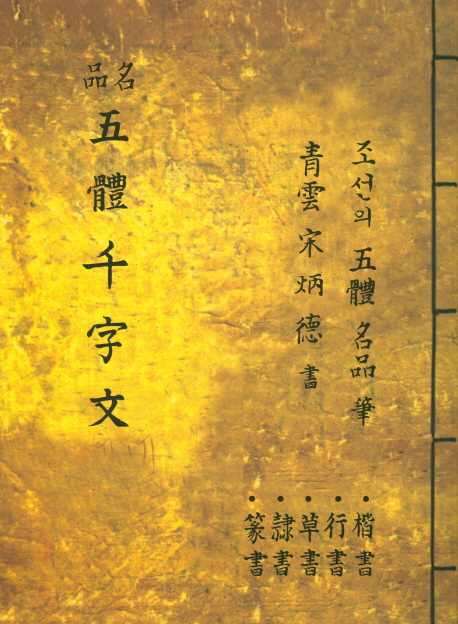 조선의 五體 名品 筆
青雲 宋炳德 書
名品
五體千字文
•楷書
•行書
•草書
•隷書
•篆書